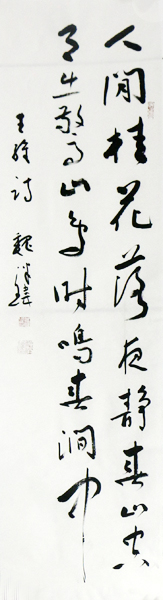 人閒桂花落夜静春山空
月出驚山鳥時鳴春澗中
王維詩 魏